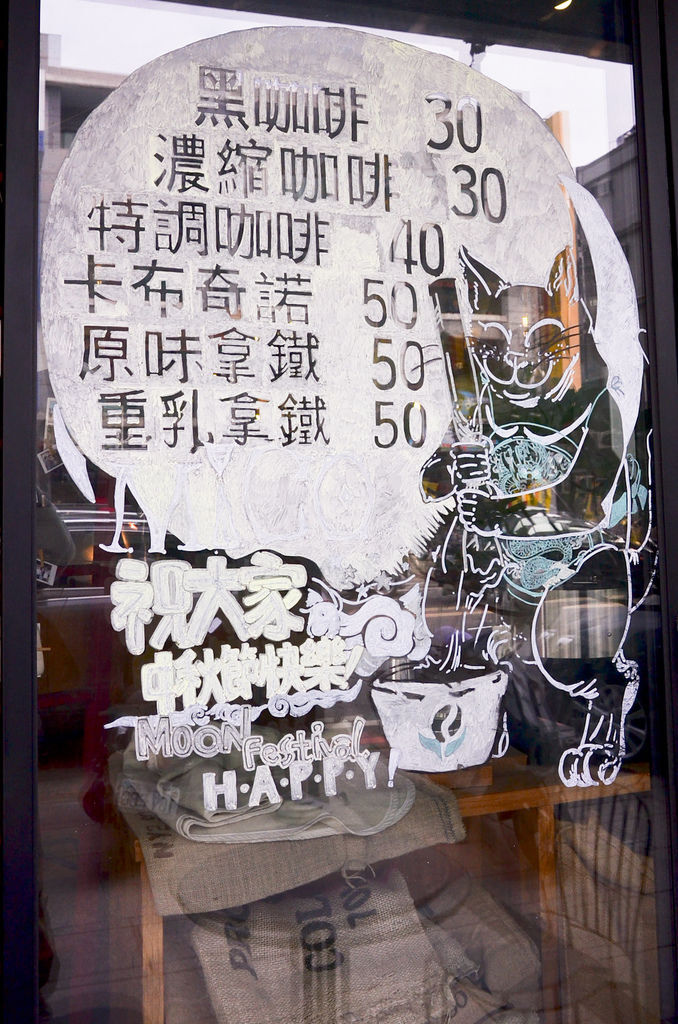 黑咖啡 30
濃縮咖啡 30
特調咖啡 40
卡布奇諾 50
原味拿鐵 50
重乳拿鐵 50
祝大家
中秋節快樂!
Moon Festival
H·A·P·P·Y!
COL